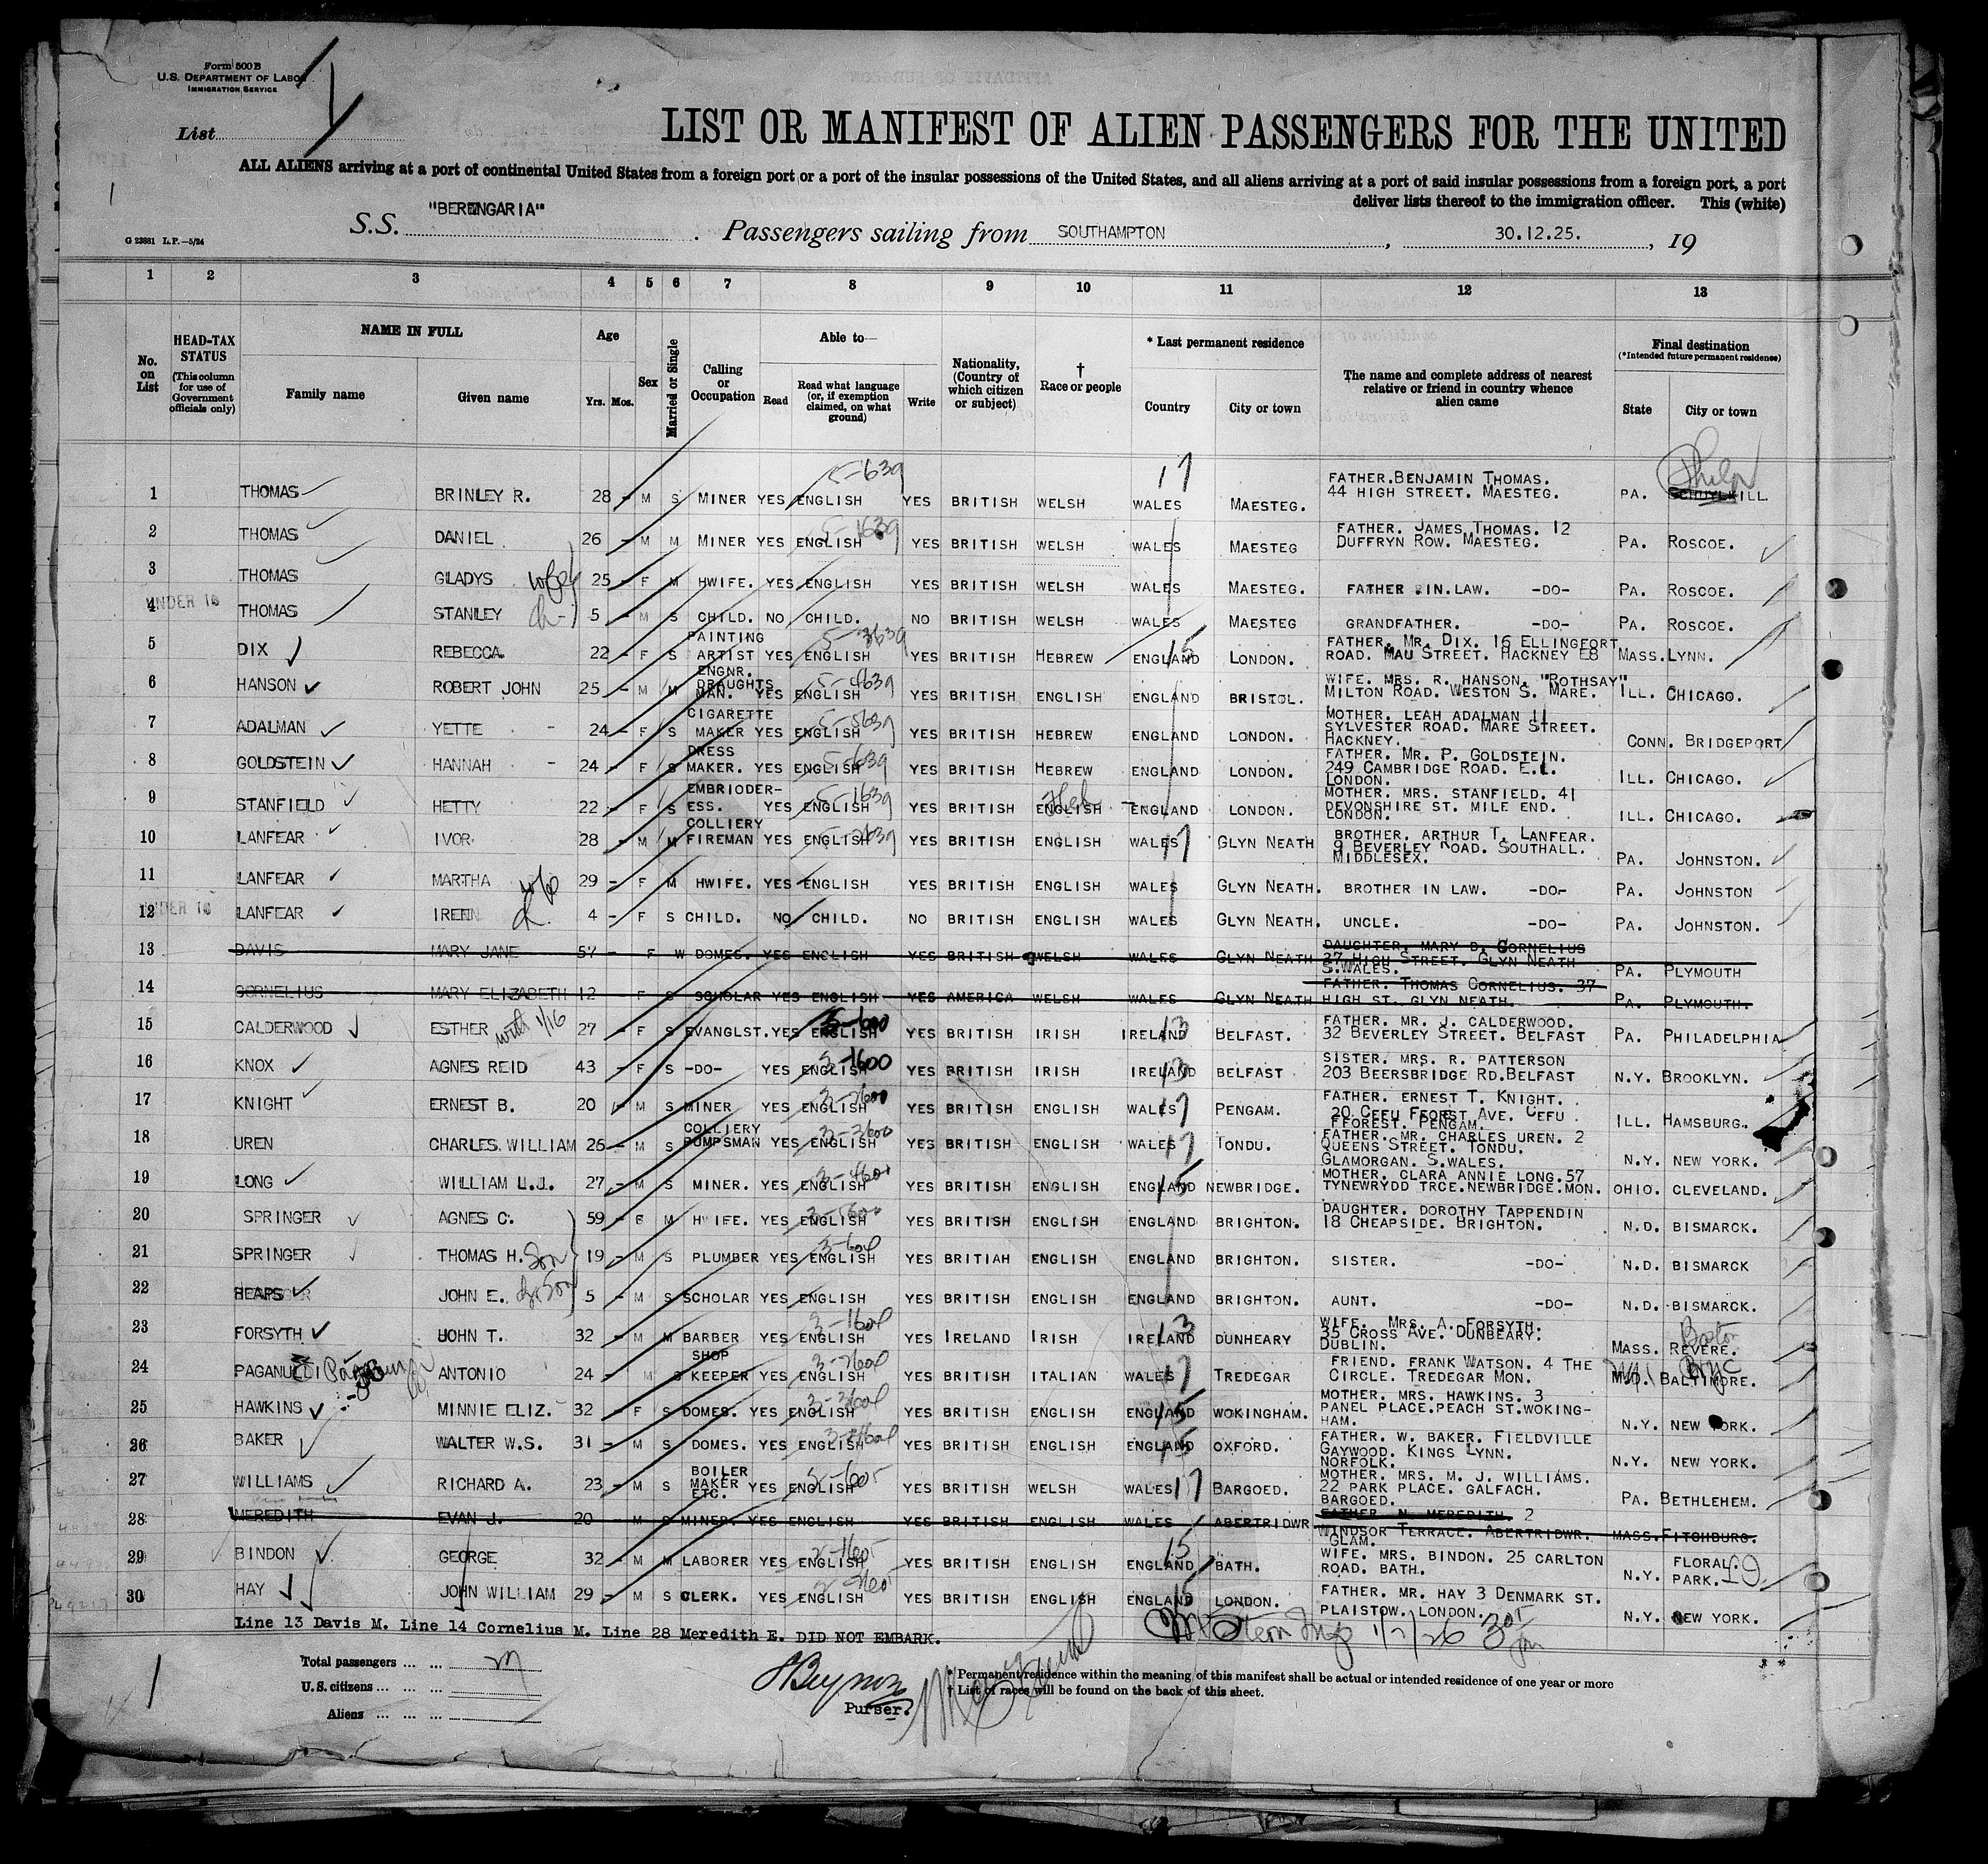 Form 500 B
U.S. DEPARTMENT OF LABOR
IMMIGRATION SERVICE
List
LIST OR MANIFEST OF ALIEN PASSENGERS FOR THE UNITED
ALL ALIENS arriving at a port of continental United States from a foreign port or a port of the insular possessions of the United States, and all aliens arriving at a port of said insular possessions from a foreign port, a port
deliver lists thereof to the immigration officer. This (white)
S.S. "BERENGARIA" Passengers sailing from SOUTHAMPTON, 30.12.25., 19
G 23881 L.P.—5/24
1 2 3 4 5 6 7 8 9 10 11 12 13
No. on List
HEAD-TAX STATUS
(This column for use of Government officials only)
NAME IN FULL
Family name
Given name
Age
Yrs. Mos.
Sex
Married or Single
Calling or Occupation
Able to—
Read
Read what language (or, if exemption claimed, on what ground)
Write
Nationality, (Country of which citizen or subject)
† Race or people
* Last permanent residence
Country
City or town
The name and complete address of nearest relative or friend in country whence alien came
Final destination
(*Intended future permanent residence)
State
City or town
1 THOMAS BRINLEY R. 28 - M S MINER YES ENGLISH 5-639 YES BRITISH WELSH WALES 17 MAESTEG. FATHER.BENJAMIN THOMAS. 44 HIGH STREET. MAESTEG. PA. SCHUYLKILL Phila
2 THOMAS DANIEL 26 - M M MINER YES ENGLISH 5-1639 YES BRITISH WELSH WALES MAESTEG FATHER. JAMES THOMAS. 12 DUFFRYN ROW. MAESTEG. PA. ROSCOE.
3 THOMAS GLADYS wife 25 - F M HWIFE. YES ENGLISH YES BRITISH WELSH WALES MAESTEG. FATHER IN.LAW. -DO- PA. ROSCOE.
4 UNDER 16 THOMAS STANLEY ch- 5 - M S CHILD. NO CHILD. NO BRITISH WELSH WALES MAESTEG GRANDFATHER. -DO- PA. ROSCOE.
5 DIX REBECCA. 22 - F S PAINTING ARTIST YES ENGLISH 5-3639 YES BRITISH HEBREW ENGLAND 15 LONDON. FATHER. MR. DIX. 16 ELLINGFORT ROAD. MAU STREET. HACKNEY E8 MASS. LYNN.
6 HANSON ROBERT JOHN 25 - M M ENGNR. DRAUGHTS MAN. YES ENGLISH 5-4639 YES BRITISH ENGLISH ENGLAND BRISTOL. WIFE. MRS. R. HANSON. "ROTHSAY" MILTON ROAD. WESTON S. MARE. ILL. CHICAGO.
7 ADALMAN YETTE - 24 - F S CIGARETTE MAKER YES ENGLISH 5-5639 YES BRITISH HEBREW ENGLAND LONDON. MOTHER. LEAH ADALMAN 11 SYLVESTER ROAD. MARE STREET. HACKNEY. CONN. BRIDGEPORT
8 GOLDSTEIN HANNAH - 24 - F S DRESS MAKER. YES ENGLISH 5-639 YES BRITISH HEBREW ENGLAND LONDON. FATHER. MR. P. GOLDSTEIN. 249 CAMBRIDGE ROAD. E.1. LONDON. ILL. CHICAGO.
9 STANFIELD HETTY 22 - F S EMBRIODER-ESS. YES ENGLISH 5-1639 YES BRITISH ENGLISH Heb ENGLAND LONDON. MOTHER. MRS. STANFIELD. 41 DEVONSHIRE ST. MILE END. LONDON. ILL. CHICAGO.
10 LANFEAR IVOR 28 - M M COLLIERY FIREMAN YES ENGLISH 5-2639 YES BRITISH ENGLISH WALES 17 GLYN NEATH BROTHER. ARTHUR T. LANFEAR. 9 BEVERLEY ROAD. SOUTHALL. MIDDLESEX. PA. JOHNSTON.
11 LANFEAR MARTHA wife 29 - F M HWIFE. YES ENGLISH YES BRITISH ENGLISH WALES GLYN NEATH. BROTHER IN LAW. -DO- PA. JOHNSTON
12 UNDER 16 LANFEAR IRENE 4 - F S CHILD. NO CHILD. NO BRITISH ENGLISH WALES GLYN NEATH. UNCLE. -DO- PA. JOHNSTON.
13 DAVIS MARY JANE 57 - F W DOMES. YES ENGLISH YES BRITISH WELSH WALES GLYN NEATH DAUGHTER. MARY B. CORNELIUS 37 HIGH STREET. GLYN NEATH S.WALES. PA. PLYMOUTH
14 CORNELIUS MARY ELIZABETH 12 - F S SCHOLAR YES ENGLISH YES AMERICA WELSH WALES GLYN NEATH FATHER. THOMAS CORNELIUS. 37 HIGH ST. GLYN NEATH. PA. PLYMOUTH.
15 CALDERWOOD ESTHER with 1/16 27 - F S EVANGLST. YES ENGLISH 3-600 YES BRITISH IRISH IRELAND 13 BELFAST. FATHER. MR. J. CALDERWOOD. 32 BEVERLEY STREET. BELFAST PA. PHILADELPHIA
16 KNOX AGNES REID 43 - F S -DO- YES ENGLISH 3-1600 YES BRITISH IRISH IRELAND 13 BELFAST SISTER. MRS. R. PATTERSON 203 BEERSBRIDGE RD.BELFAST N.Y. BROOKLYN.
17 KNIGHT ERNEST B. 20 - M S MINER YES ENGLISH 3-2600 YES BRITISH ENGLISH WALES 17 PENGAM. FATHER. ERNEST T. KNIGHT. 20 CEFU FFORST AVE. CEFU FFOREST. PENGAM. ILL. HAMSBURG.
18 UREN CHARLES WILLIAM 26 - M S COLLIERY PUMPSMAN YES ENGLISH 3-3600 YES BRITISH ENGLISH WALES 17 TONDU. FATHER. MR. CHARLES UREN. 2 QUEENS STREET. TONDU. GLAMORGAN. S.WALES. N.Y. NEW YORK.
19 LONG WILLIAM L.J. 27 - M S MINER. YES ENGLISH 3-4600 YES BRITISH ENGLISH ENGLAND 15 NEWBRIDGE. MOTHER. CLARA ANNIE LONG.57 TYNEWRYDD TRCE.NEWBRIDGE.MON. OHIO. CLEVELAND.
20 SPRINGER AGNES C. 59 - M HWIFE. YES ENGLISH 3-5600 YES BRITISH ENGLISH ENGLAND BRIGHTON. DAUGHTER. DOROTHY TAPPENDIN 18 CHEAPSIDE. BRIGHTON. N.D. BISMARCK.
21 SPRINGER THOMAS H. Son 19 - M S PLUMBER YES ENGLISH YES BRITIAH ENGLISH ENGLAND BRIGHTON. SISTER. -DO- N.D. BISMARCK
22 HEAPS JOHN E. Gr Son 5 - M S SCHOLAR YES ENGLISH YES BRITISH ENGLISH ENGLAND BRIGHTON. AUNT. -DO- N.D. BISMARCK.
23 FORSYTH JOHN T. 32 - M M BARBER YES ENGLISH YES IRELAND IRISH IRELAND 13 DUNHEARY WIFE. MRS. A. FORSYTH. 35 CROSS AVE. DUNBEARY. DUBLIN. MASS. REVERE. Boston
24 PAGANUZZI ANTONIO 24 - M S SHOP KEEPER YES ENGLISH YES BRITISH ITALIAN WALES 17 TREDEGAR FRIEND. FRANK WATSON. 4 THE CIRCLE. TREDEGAR MON. MD. BALTIMORE.
25 HAWKINS MINNIE ELIZ. 32 - F S DOMES. YES ENGLISH YES BRITISH ENGLISH ENGLAND 15 WOKINGHAM. MOTHER. MRS. HAWKINS. 3 PANEL PLACE.PEACH ST.WOKING-HAM. N.Y. NEW YORK.
26 BAKER WALTER W.S. 31 - M S DOMES. YES ENGLISH YES BRITISH ENGLISH ENGLAND 15 OXFORD. FATHER. W. BAKER. FIELDVILLE GAYWOOD. KINGS LYNN. NORFOLK. N.Y. NEW YORK.
27 WILLIAMS RICHARD A. 23 - M S BOILER MAKER ETC. YES ENGLISH YES BRITISH WELSH WALES 17 BARGOED. MOTHER. MRS. M. J. WILLIAMS. 22 PARK PLACE. GALFACH. BARGOED. PA. BETHLEHEM.
28 MEREDITH EVAN J. 20 - M S MINER. YES ENGLISH YES BRITISH ENGLISH WALES ABERTRIDWR FATHER. N. MEREDITH. 2 WINDSOR TERRACE. ABERTRIDWR. GLAM. MASS. FITCHBURG.
29 BINDON GEORGE 32 - M M LABORER YES ENGLISH YES BRITISH ENGLISH ENGLAND 15 BATH. WIFE. MRS. BINDON. 25 CARLTON ROAD. BATH. N.Y. FLORAL. PARK.
30 HAY JOHN WILLIAM 29 - M S CLERK. YES ENGLISH YES BRITISH ENGLISH ENGLAND 15 LONDON. FATHER. MR. HAY 3 DENMARK ST. PLAISTOW. LONDON. N.Y. NEW YORK.
Line 13 Davis M. Line 14 Cornelius M. Line 28 Meredith E. DID NOT EMBARK.
Total passengers ... ...
U.S. citizens ... ...
Aliens ... ... ...
Purser.
* Permanent residence within the meaning of this manifest shall be actual or intended residence of one year or more
† List of races will be found on the back of this sheet.